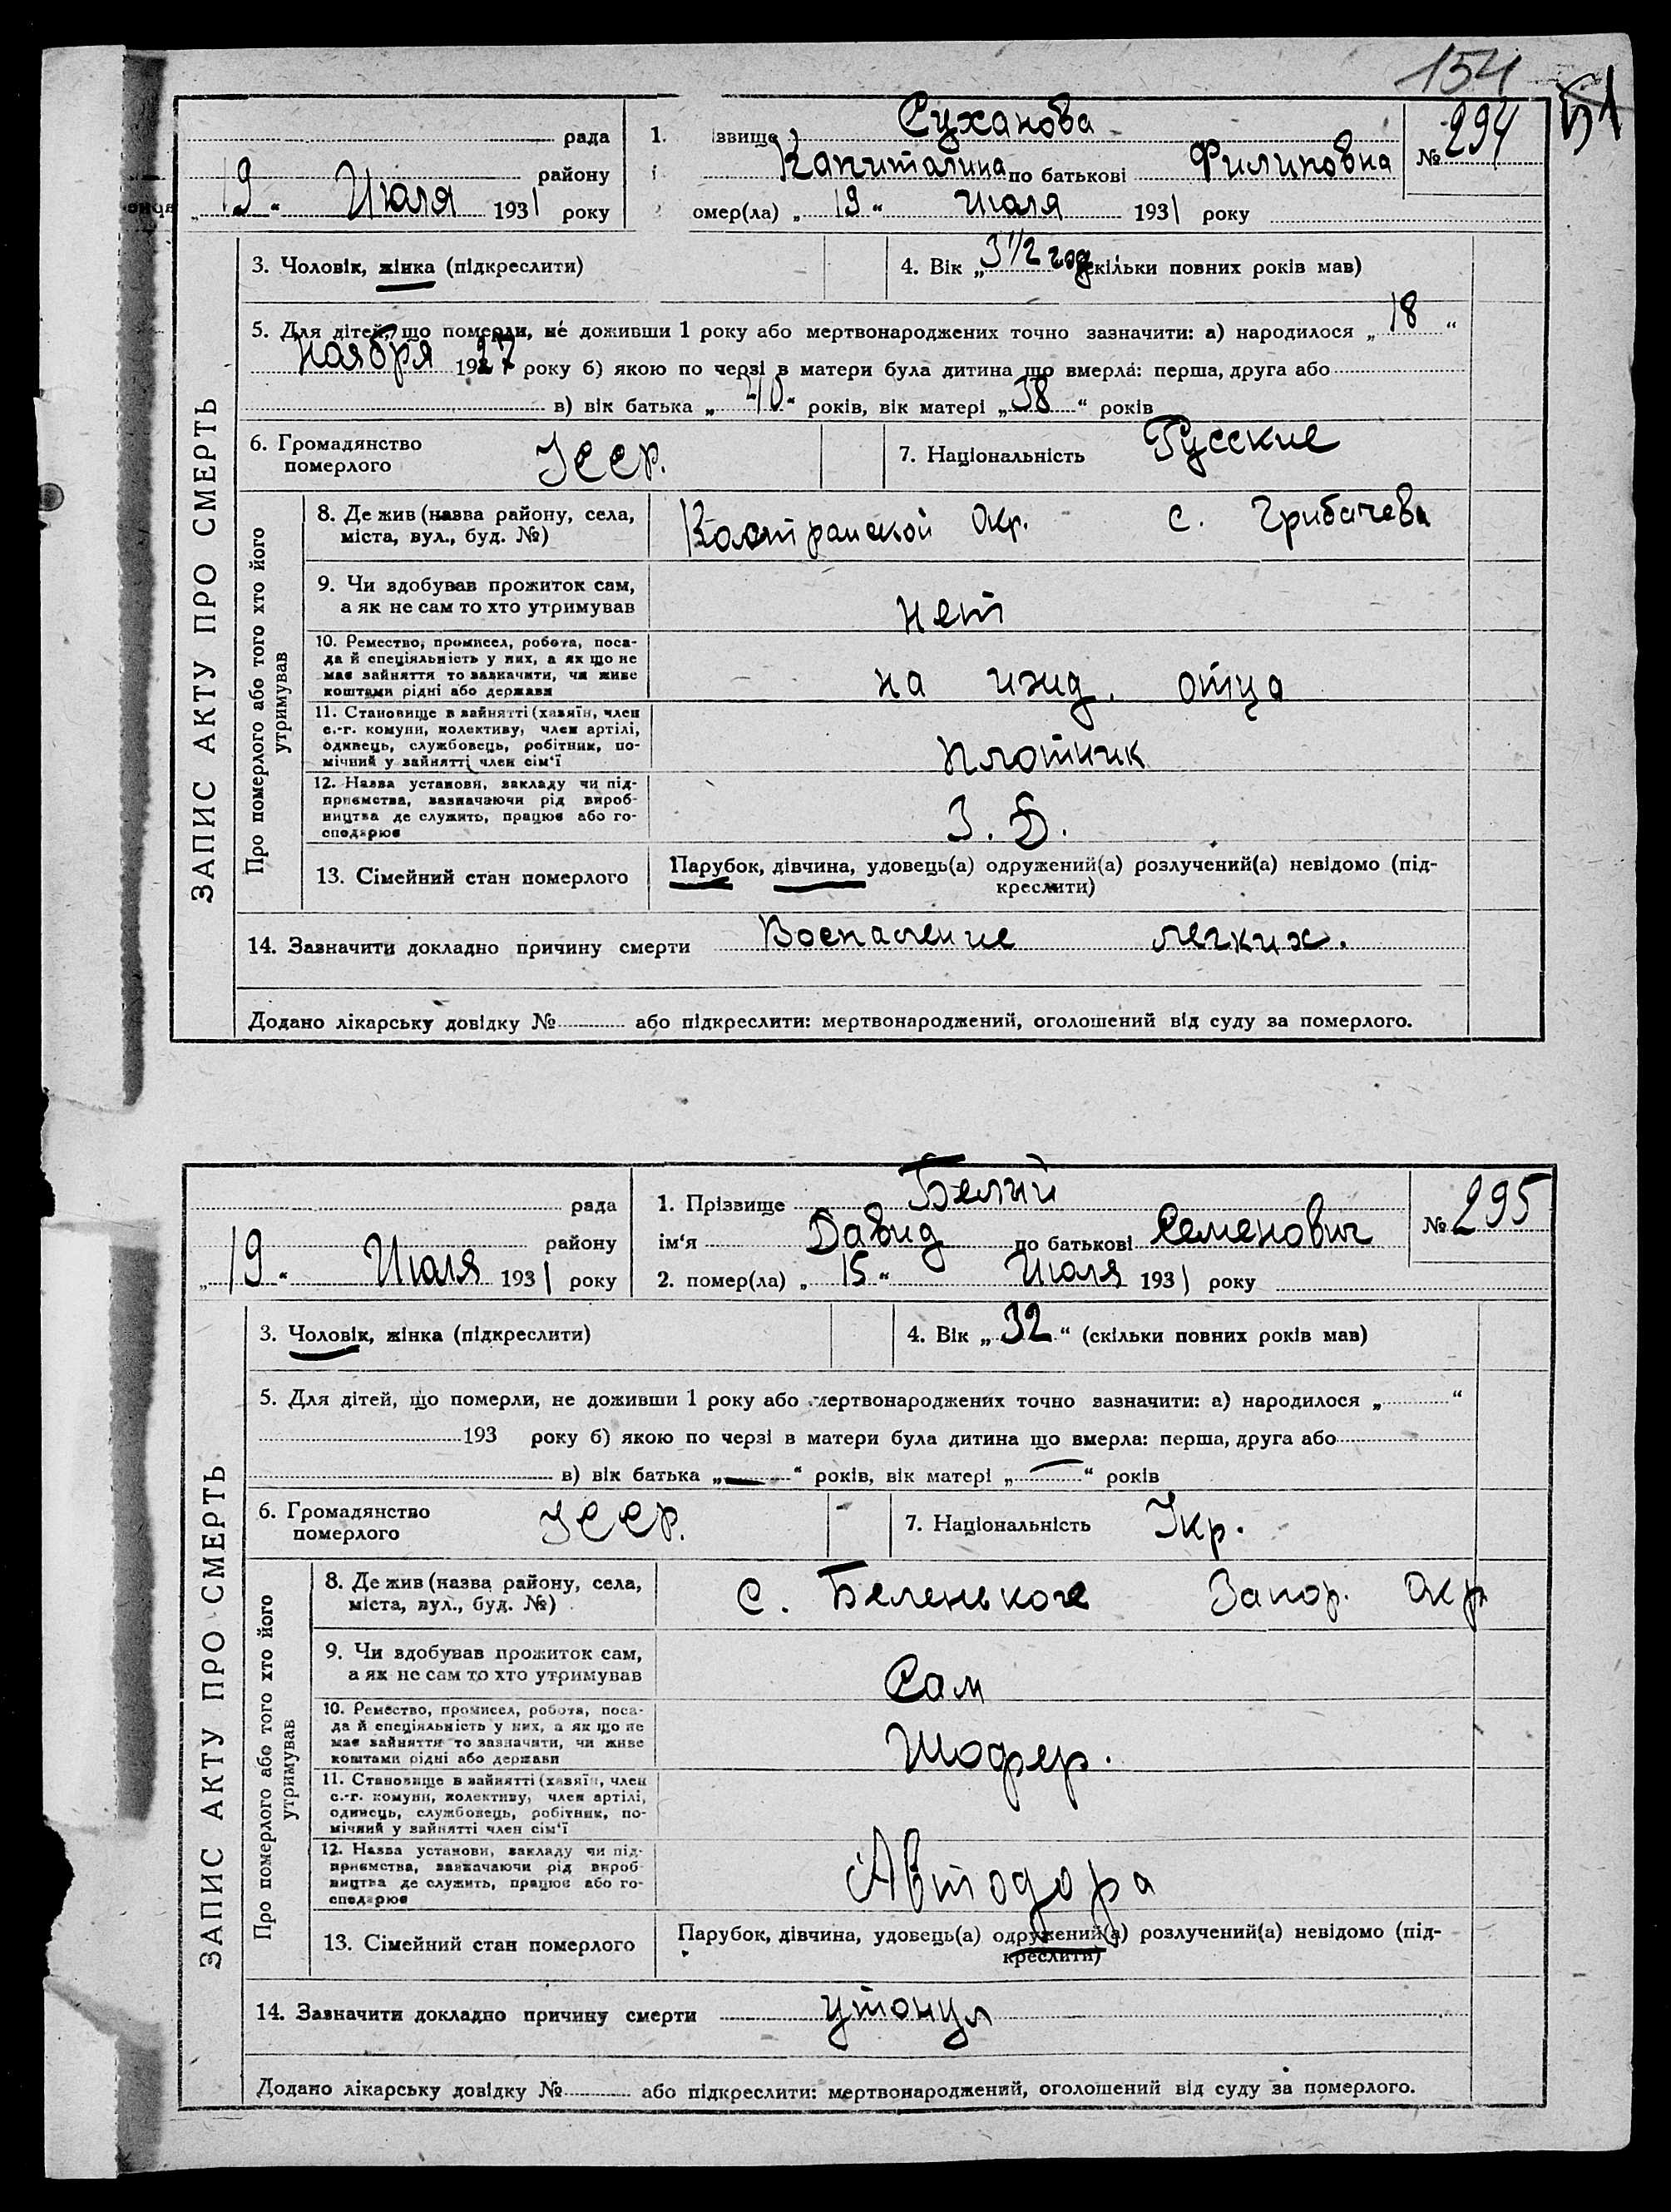 154
51
рада 1. ізвище Суханова № 294
району і Капиталина по батькові Филиповна
„19“ Июля 1931 року омер(ла) „19“ Июля 1931 року
3. Чоловік, жінка (підкреслити) 4. Вік „3 1/2 год (скільки повних років мав)
5. Для дітей, що померли, не доживши 1 року або мертвонароджених точно зазначити: а) народилося „18“
Ноября 1927 року б) якою по черзі в матери була дитина що вмерла: перша, друга або
в) вік батька „40“ років, вік матері „38“ років
6. Громадянство
померлого
УССР.
7. Національність Русские
ЗАПИС АКТУ ПРО СМЕРТЬ
Про померлого або того хто його
утримував
8. Де жив (назва району, села,
міста, вул., буд. №)
Костромской Окр. с. Грибачева
9. Чи здобував прожиток сам,
а як не сам то хто утримував
нет
10. Ремество, промисел, робота, поса-
да й спеціяльність у них, а як що не
має зайняття то зазначити, чи живе
коштами рідні або держави
на ижд. отца
11. Становище в зайнятті (хазяїн, член
с.-г. комуни, колективу, член артілі,
одинець, службовець, робітник, по-
мічний у зайнятті член сім'ї
плотник
12. Назва установи, закладу чи під-
приємства, зазначаючи рід вироб-
ництва де служить, працює або го-
сподарює
З. Б.
13. Сімейний стан померлого Парубок, дівчина, удовець(а) одружений(а) розлучений(а) невідомо (під-
креслити)
14. Зазначити докладно причину смерти Воспаление легких.
Додано лікарську довідку № або підкреслити: мертвонароджений, оголошений від суду за померлого.
рада 1. Прізвище Белий № 295
району ім'я Давид по батькові Семенович
„19“ Июля 1931 року 2. помер(ла) „15“ Июля 1931 року
3. Чоловік, жінка (підкреслити) 4. Вік „32“ (скільки повних років мав)
5. Для дітей, що померли, не доживши 1 року або мертвонароджених точно зазначити: а) народилося „ “
193 року б) якою по черзі в матери була дитина що вмерла: перша, друга або
в) вік батька „—“ років, вік матері „—“ років
6. Громадянство
померлого
УССР.
7. Національність Укр.
ЗАПИС АКТУ ПРО СМЕРТЬ
Про померлого або того хто його
утримував
8. Де жив (назва району, села,
міста, вул., буд. №)
С. Беленькое Запор. Окр
9. Чи здобував прожиток сам,
а як не сам то хто утримував
Сам
10. Ремество, промисел, робота, поса-
да й спеціяльність у них, а як що не
має зайняття то зазначити, чи живе
коштами рідні або держави
Шофер.
11. Становище в зайнятті (хазяїн, член
с.-г. комуни, колективу, член артілі,
одинець, службовець, робітник, по-
мічний у зайнятті член сім'ї
12. Назва установи, закладу чи під-
приємства, зазначаючи рід вироб-
ництва де служить, працює або го-
сподарює
Автодора
13. Сімейний стан померлого Парубок, дівчина, удовець(а) одружений(а) розлучений(а) невідомо (під-
креслити)
14. Зазначити докладно причину смерти утонул
Додано лікарську довідку № або підкреслити: мертвонароджений, оголошений від суду за померлого.